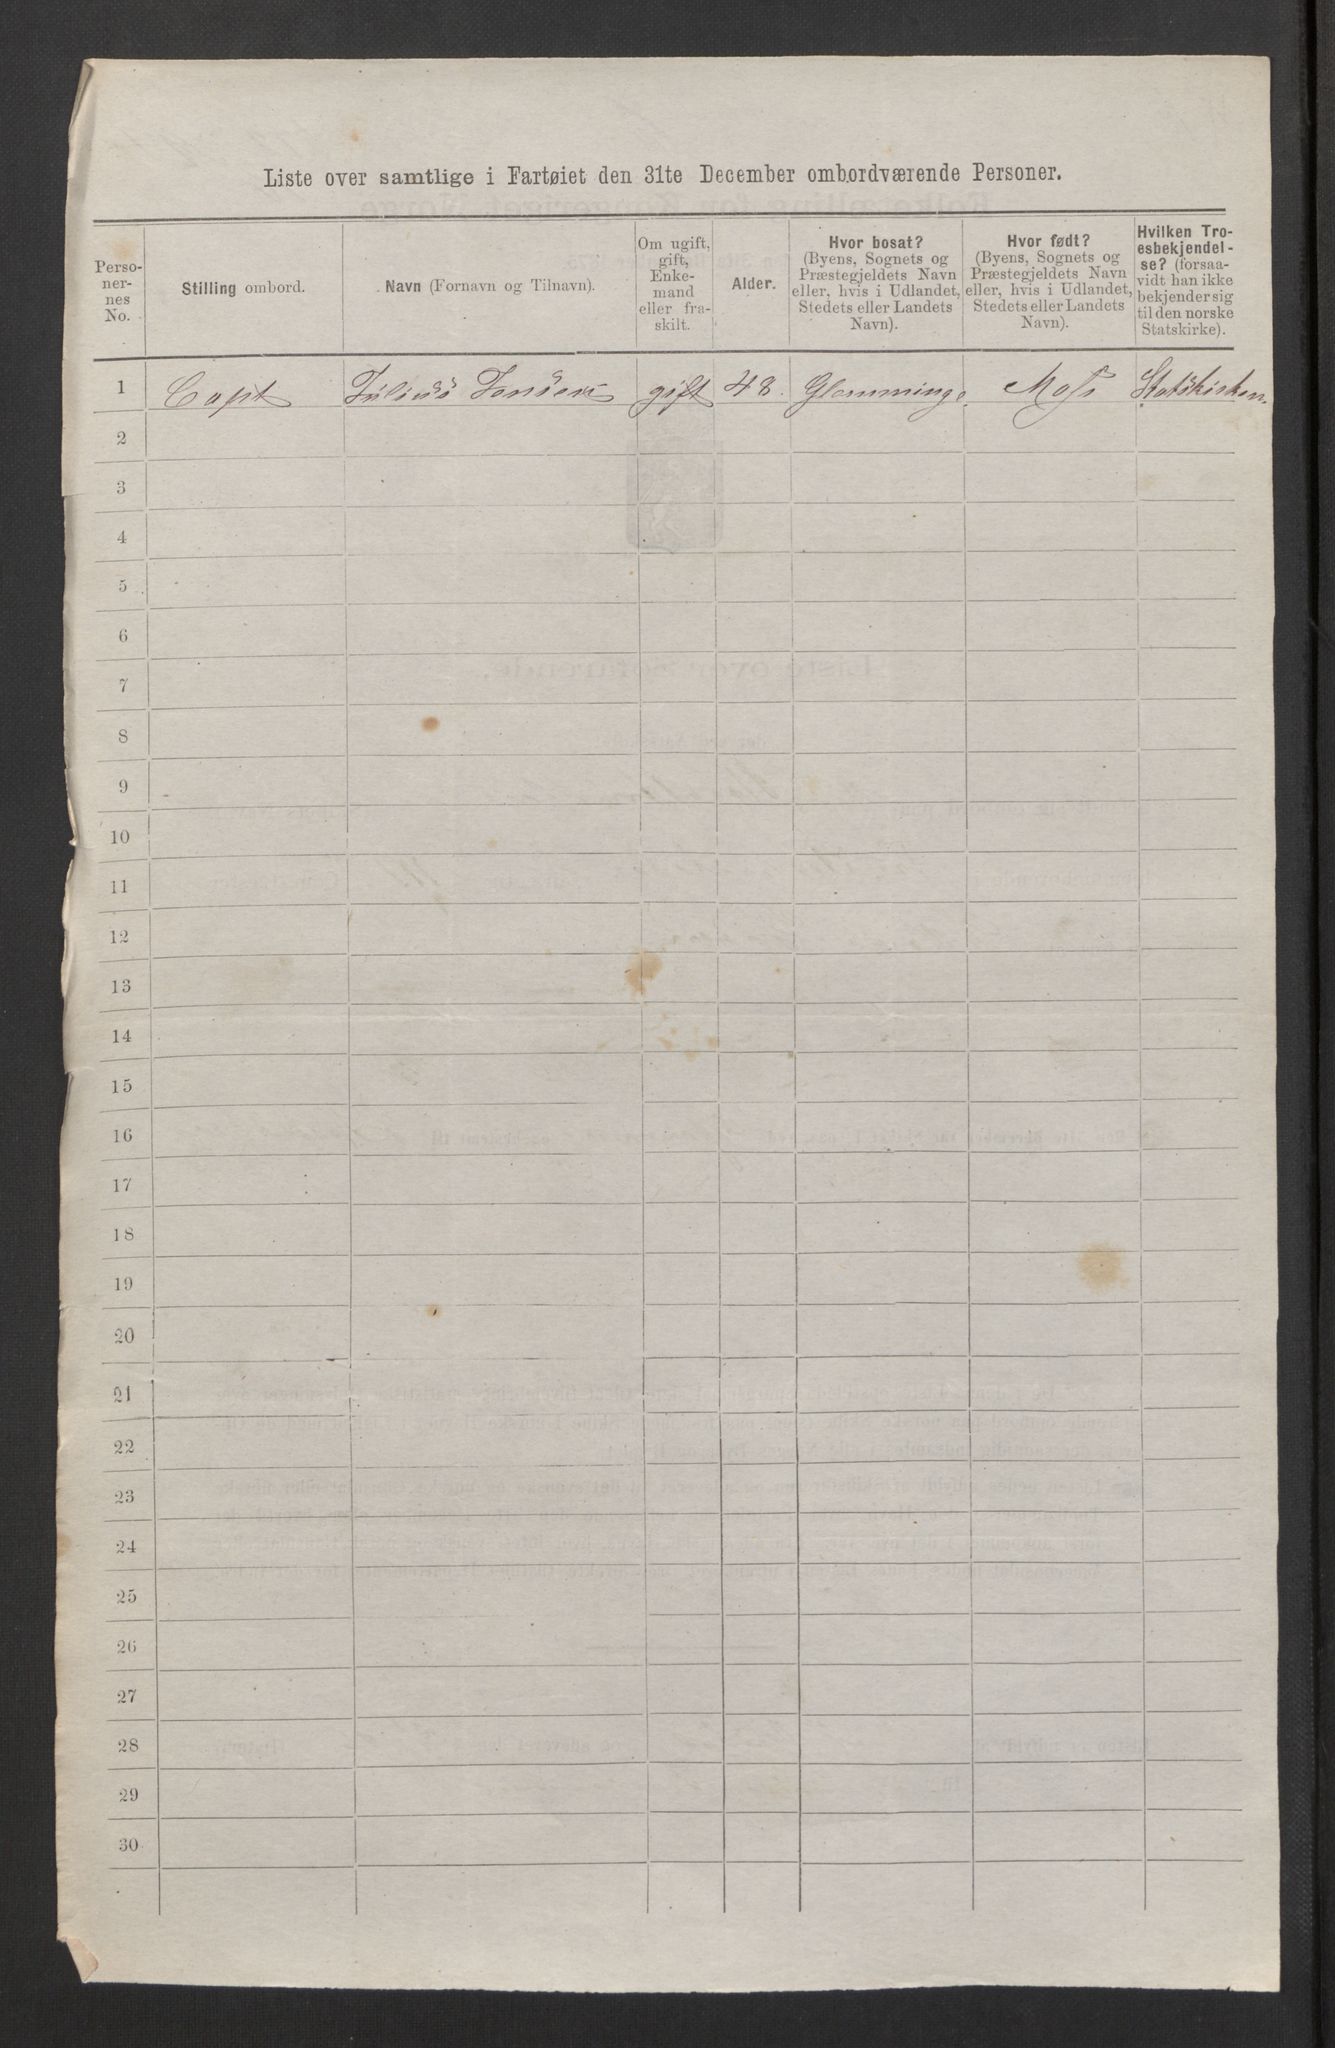 Liste over samtlige i Fartøiet den 31te December ombordværende Personer.
Perso-
ner-
nes
No.
Stilling ombord.
Navn (Fornavn og Tilnavn).
Om ugift,
gift,
Enke-
mand
eller fra-
skilt.
Alder.
Hvor bosat?
(Byens, Sognets og
Præstegjeldets Navn
eller, hvis i Udlandet,
Stedets eller Landets
Navn).
Hvor født?
(Byens, Sognets og
Præstegjeldets Navn
eller, hvis i Udlandet,
Stedets eller Landets
Navn).
Hvilken Tro-
esbekjendel-
se? (forsaa-
vidt han ikke
bekjender sig
til den norske
Statskirke).
1 Capt Julius Jensen gift 48. Glemminge. Moss Statskirken.
2
3
4
5
6
7
8
9
10
11
12
13
14
15
16
17
18
19
20
21
22
23
24
25
26
27
28
29
30